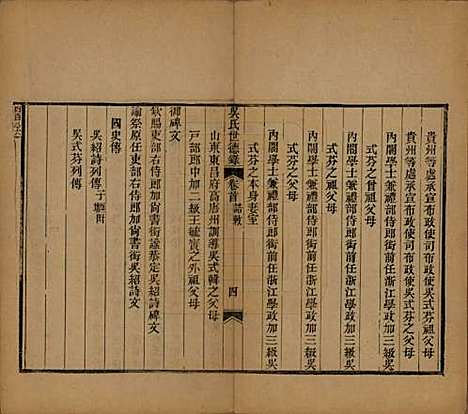 貴州等處承宣布政使司布政使吳式芬祖父母
貴州等處承宣布政使司布政使吳式芬父母
內閣學士兼禮部侍郎銜前任浙江學政加三級吳
式芬之曾祖父母
內閣學士兼禮部侍郎銜前任浙江學政加三級吳
式芬之祖父母
內閣學士兼禮部侍郎銜前任浙江學政加三級吳
式芬之父母
內閣學士兼禮部侍郎銜前任浙江學政加三級吳
式芬之本身妻室
吳氏世德錄 卷首 誥敕 四
山東東昌府高唐州訓導吳式韓之父母
戶部郎中加二級王毓寶之外祖父母
御碑文
欽賜吏部右侍郎加尚書銜謚恭定吳紹詩碑文
諭祭原任吏部右侍郎加尚書銜吳紹詩文
國史傳
吳紹詩列傳子壇垣
吳式芬列傳